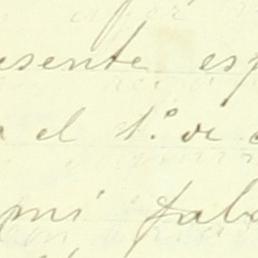 esente esp
el 1º de
mi fab